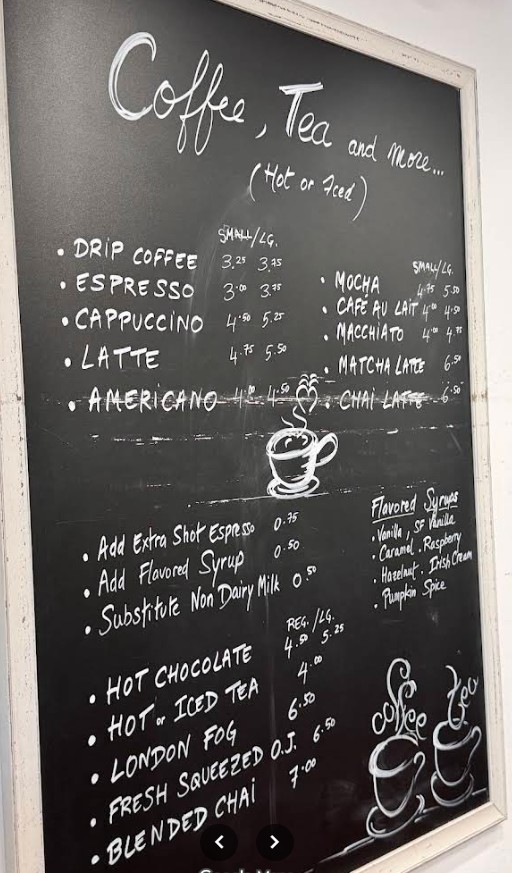 Coffee, Tea and more...
(Hot or Iced)
SMALL/LG.
• DRIP COFFEE 3.25 3.75
• ESPRESSO 3.00 3.75
• CAPPUCCINO 4.50 5.25
• LATTE 4.75 5.50
• AMERICANO 4.00 4.50
SMALL/LG.
• MOCHA 4.75 5.50
• CAFÉ AU LAIT 4.00 4.50
• MACCHIATO 4.00 4.75
• MATCHA LATTE 6.50
• CHAI LATTE 6.50
• Add Extra Shot Espresso 0.75
• Add Flavored Syrup 0.50
• Substitute Non Dairy Milk 0.50
Flavored Syrups
• Vanilla, SF Vanilla
• Caramel. Raspberry
• Hazelnut. Irish Cream
• Pumpkin Spice
REG./LG.
• HOT CHOCOLATE 4.50 5.25
• HOT or ICED TEA 4.00
• LONDON FOG 6.50
• FRESH SQUEEZED O.J. 6.50
• BLENDED CHAI 7.00
coffee
tea